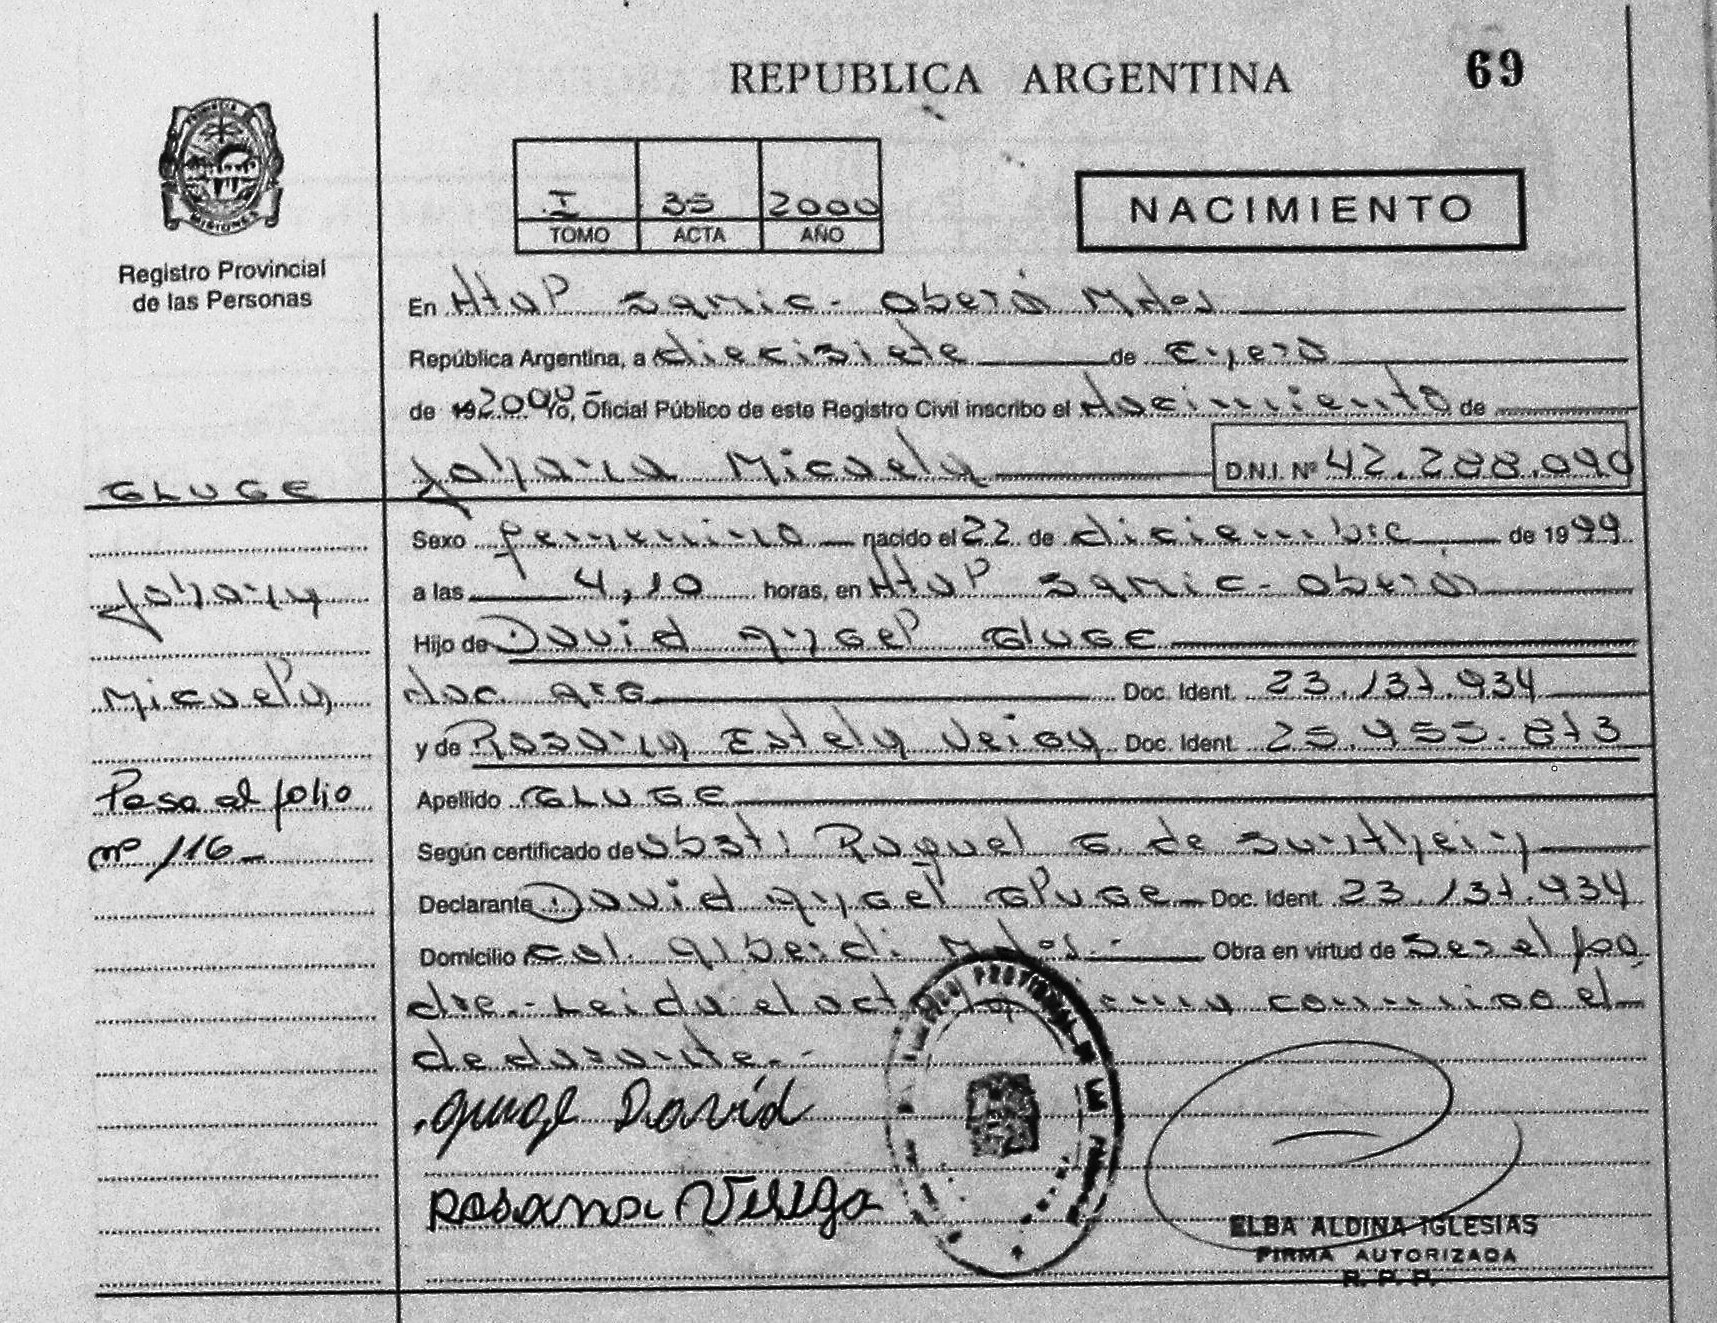 REPUBLICA ARGENTINA
69
MISIONES
Registro Provincial
de las Personas
I 35 2000
TOMO ACTA AÑO
NACIMIENTO
En Htal Samic - Oberá Mnes
República Argentina, a diecisiete de Enero
de 19 2000, Oficial Público de este Registro Civil inscribo el Nacimiento de
GLUGE
Johana Micaela D.N.I. Nº 42.288.090
Sexo femenino nacido el 22 de diciembre de 1999
Johana
a las 4,10 horas, en Htal Samic - Oberá
Hijo de David Angel GLUGE
Micaela
Nac. Arg Doc. Ident. 23.137.934
y de Rosana Estela Doc. Ident. 25.955.873
Pasa al folio
nº 116
Apellido GLUGE
Según certificado de Obst. Raquel G. de
Declarante David Angel Gluge Doc. Ident. 23.137.934
Domicilio Col. Alberdi Mnes.- Obra en virtud de Ser el pa
dre.- Leida el acta conmigo el
declarante.-
David
Rosana
ELBA ALDINA IGLESIAS
FIRMA AUTORIZADA
R. P. P.